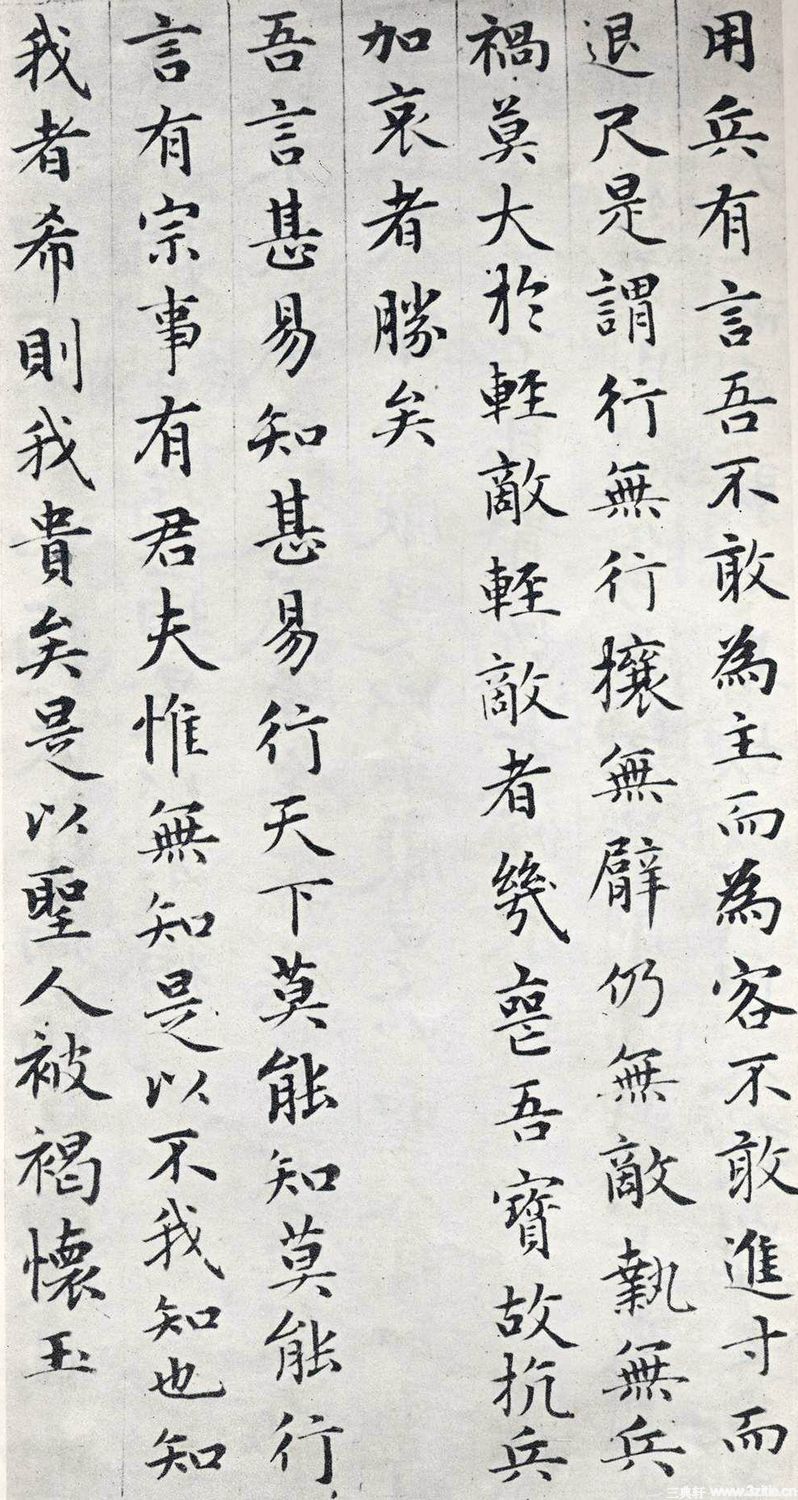 用兵有言吾不敢為主而為客不敢進寸而
退尺是謂行無行攘無臂仍無敵執無兵
禍莫大於輕敵輕敵者幾喪吾寶故抗兵
加哀者勝矣
吾言甚易知甚易行天下莫能知莫能行
言有宗事有君夫惟無知是以不我知也知
我者希則我貴矣是以聖人被褐懷玉
三典轩 www.3zitie.cn